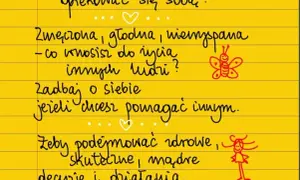 opiekować się sobą?
Zmęczona, głodna, niewyspana
- co wnosisz do życia
innych ludzi?
Zadbaj o siebie
jeżeli chcesz pomagać innym.
Żeby podejmować zdrowe,
skuteczne, mądre
decyzje i działania